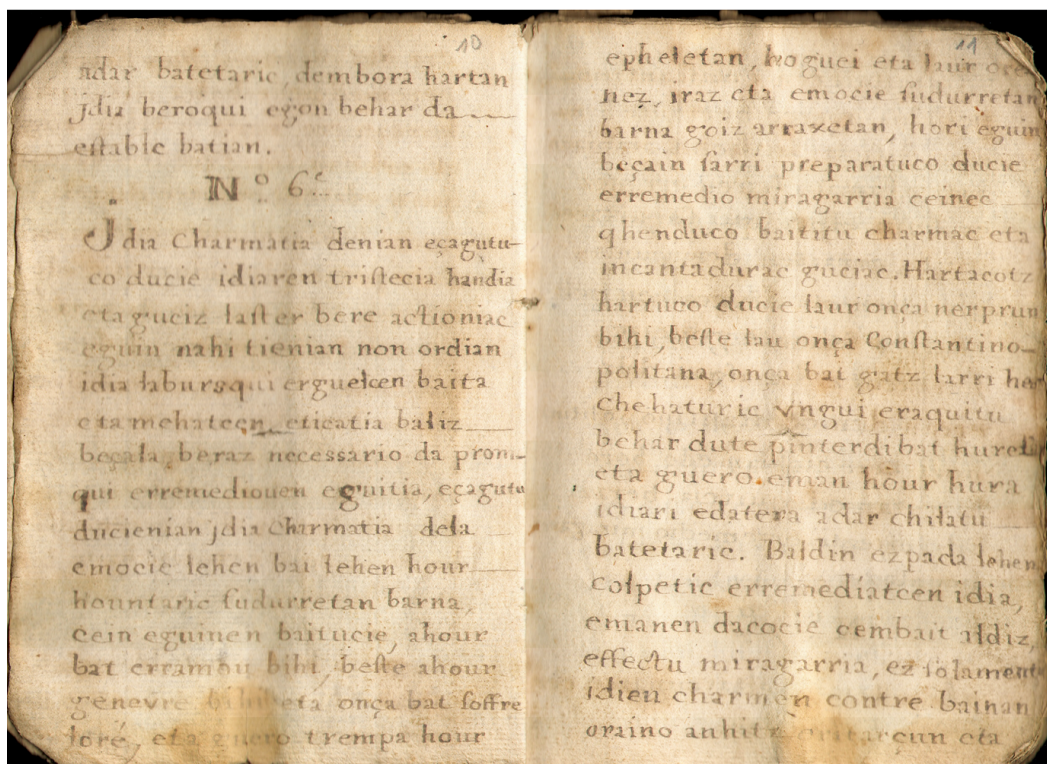 10
adar batetaric, dembora hartan
jdia beroqui egon behar da
eſtable batian.
N.º 6.e
Jdia Charmatia denian eçagutu-
co ducie idiaren triſtecia handia
eta guciz laſter bere actioniac
eguin nahi tienian non ordian
idia labursqui erguelcen baita
eta mehatcen, eticatia baliz
beçala, beraz neceſſario da prom-
qui erremediouen eguitia, eçagutu
ducienian jdia Charmatia dela
emocie lehen bai lehen hour
hountaric ſudurretan barna,
cein eguinen baitucie, ahour
bat erramou bihi, beſte ahour
genevre bihi eta onça bat ſoffre
lore, eta guero trempa hour
11
epheletan, hoguei eta laur ore
nez, iraz eta emocie ſudurretan
barna goiz arraxetan, hori eguin
beçain ſarri preparatuco ducie
erremedio miragarria ceinec
qhenduco baititu charmac eta
incantadurac guciac. Hartacotz
hartuco ducie laur onça nerprun
bihi, beſte lau onça Conſtantino-
politana, onça bai gatz larri
chehaturic vngui eraquitu
behar dute pinterdi bat
eta guero eman hour hura
idiari edatera adar chilatu
batetaric. Baldin ezpada lehen
colpetic erremediatcen idia,
emanen dacocie cembait aldiz,
effectu miragarria, ez ſolament
idien charmen contre bainan
oraino anhitz eta